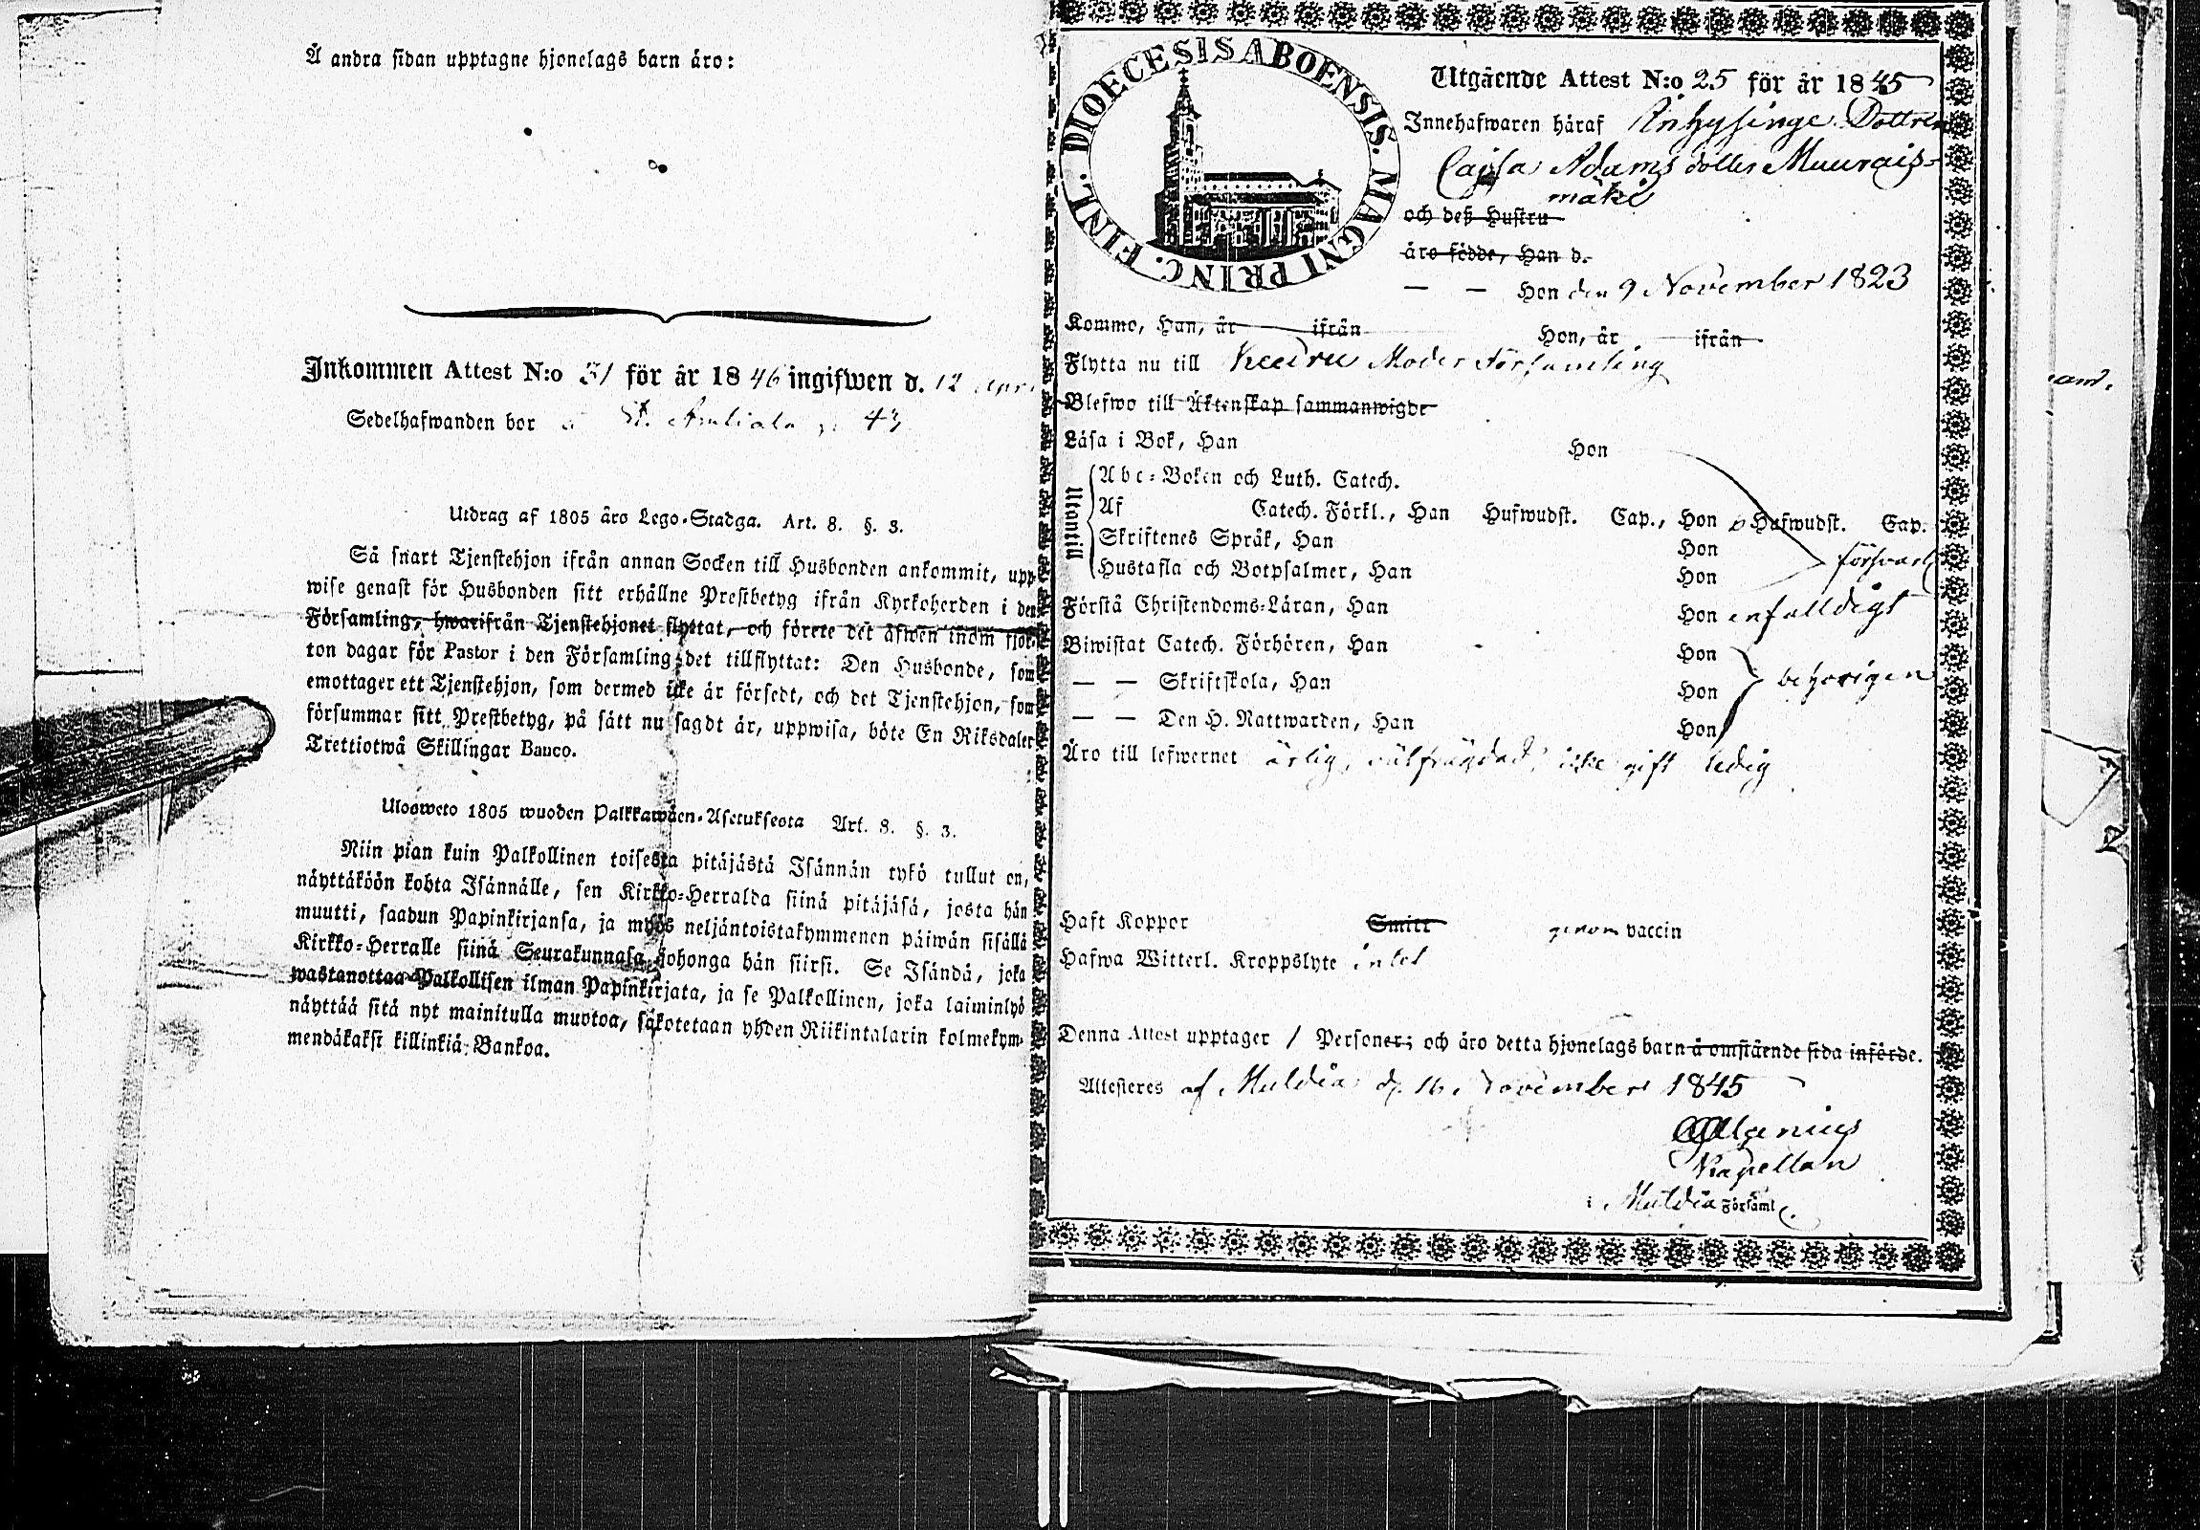 Å andra sidan upptagne hjonelags barn äro:
Inkommen Attest N:o 31 för år 1846 ingifwen d. 12
Sedelhafwanden bor St. 43
Utdrag af 1805 års Lego-Stadga. Art. 8. §. 3.
Så snart Tjenstehjon ifrån annan Socken till Husbonden ankommit, upp-
wise genast för Husbonden sitt erhållne Prestbetyg ifrån Kyrkoherden i den
Församling, hwarifrån Tjenstehjonet flyttat, och förete det äfwen inom fjor-
ton dagar för Pastor i den Församling det tillflyttat: Den Husbonde, som
emottager ett Tjenstehjon, som dermed icke är försedt, och det Tjenstehjon, som
försummar sitt Prestbetyg, på sätt nu sagdt är, uppwisa, böte En Riksdaler
Trettiotwå Skillingar Banco.
Ulosweto 1805 wuoden Palkkawäen-Asetuksesta Art. 8. §. 3.
Niin pian kuin Palkollinen toisesta pitäjästä Isännän tykö tullut on,
näyttäköön kohta Isännälle, sen Kirkko-Herralda siinä pitäjäsä, josta hän
muutti, saadun Papinkirjansa, ja myös neljäntoistakymmenen päiwän sisällä
Kirkko-Herralle siinä Seurakunnasa, hohonga hän siirsi. Se Isändä, joka
wastanottaa Palkollisen ilman Papinkirjata, ja se Palkollinen, joka laiminlyö
näyttää sitä nyt mainitulla muotoa, sakotetaan yhden Riikintalarin kolmekym-
mendäkaksi killinkiä Bankoa.
DIOECESIS ABOENSIS. MAGNI PRINC. FINL.
Utgående Attest N:o 25 för år 1845
Innehafwaren häraf Inhysinge Dottren
Cajsa Adams dotter Muurais-
mäki
och deß Hustru
äro födde, Han d.
— — Hon den 9 November 1823
Kommo, Han, år ifrån Hon, år ifrån
Flytta nu till Keuru Moder Församling
Blefwo till Äktenskap sammanwigde
Läsa i Bok, Han Hon
Utantill
Abc-Boken och Luth. Catech.
Af Catech. Förkl., Han Hufwudst. Cap., Hon Hufwudst. Cap.
Skriftenes Språk, Han Hon
försvarl
Hustafla och Botpsalmer, Han Hon
Förstå Christendoms-Läran, Han Hon enfalldigt
Biwistat Catech. Förhören, Han Hon
— — Skriftskola, Han Hon behörigen
— — Den H. Nattwarden, Han Hon
Äro till lefwernet ärlig, välfrägdad, icke gift ledig
Haft Koppor Smitt genom vaccin
Hafwa Witterl. Kroppslyte intet
Denna Attest upptager 1 Personer; och äro detta hjonelags barn å omstående sida införde.
Attesteres af Muldia d. 16 November 1845
Kapellan
i Muldia Församl.